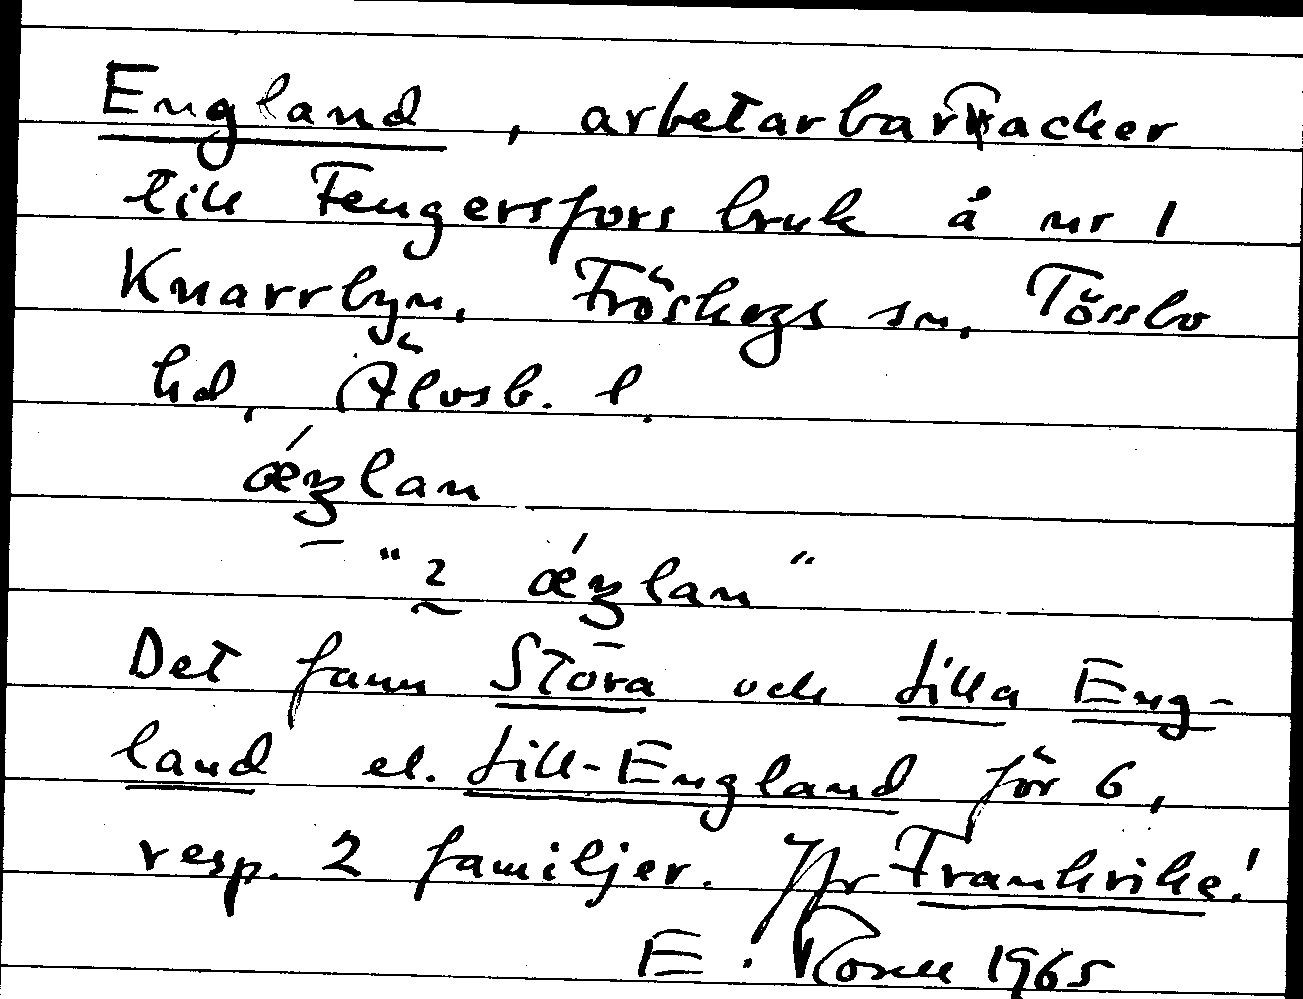 England, arbetarbarracker
till Fengersfors bruk å nr 1
Knarrbyn, Fröskogs sn, Tössbo
hd, Älvsb. l.
ǽŋlan
"2 ǽŋlan"
Det fanns Stora och Lilla Eng-
land el. Lill-England för 6,
resp. 2 familjer. Jfr Frankrike!
E. 1965